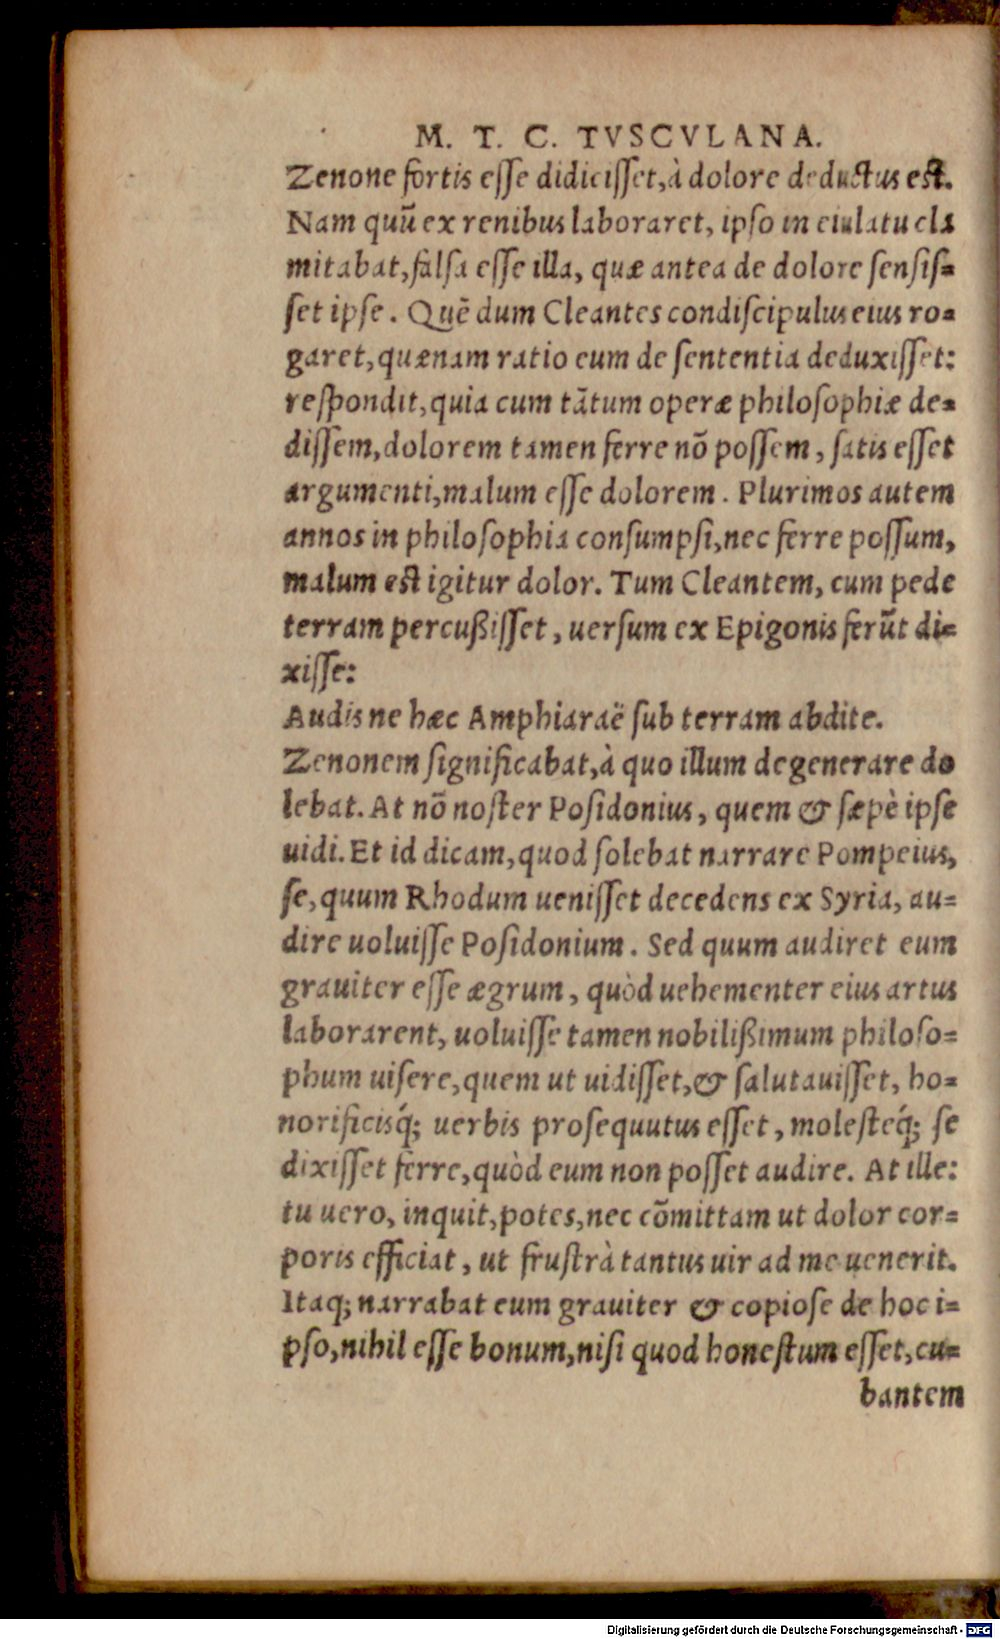 M. T. C. TVSCVLANA.
Zenone fortis esse didicisset, à dolore deductus est.
Nam quũ ex renibus laboraret, ipso in eiulatu cla
mitabat, falsa esse illa, quæ antea de dolore sensis=
set ipse. Quẽ dum Cleantes condiscipulus eius ro=
garet, quænam ratio eum de sententia deduxisset:
respondit, quia cum tãtum operæ philosophiæ de=
dissem, dolorem tamen ferre nõ possem, satis esset
argumenti, malum esse dolorem. Plurimos autem
annos in philosophia consumpsi, nec ferre possum,
malum est igitur dolor. Tum Cleantem, cum pede
terram percußisset, uersum ex Epigonis ferũt di=
xisse:
Audis ne hæc Amphiaraë sub terram abdite.
Zenonem significabat, à quo illum degenerare do
lebat. At nõ noster Posidonius, quem & sæpè ipse
uidi. Et id dicam, quod solebat narrare Pompeius,
se, quum Rhodum uenisset decedens ex Syria, au=
dire uoluisse Posidonium. Sed quum audiret eum
grauiter esse ægrum, quòd uehementer eius artus
laborarent, uoluisse tamen nobilißimum philoso=
phum uisere, quem ut uidisset, & salutauisset, ho=
norificisq́; uerbis prosequutus esset, molesteq́; se
dixisset ferre, quòd eum non posset audire. At ille:
tu uero, inquit, potes, nec cõmittam ut dolor cor=
poris efficiat, ut frustrà tantus uir ad me uenerit.
Itaq; narrabat eum grauiter & copiose de hoc i=
pso, nihil esse bonum, nisi quod honestum esset, cu=
bantem
Digitalisierung gefördert durch die Deutsche Forschungsgemeinschaft - DFG